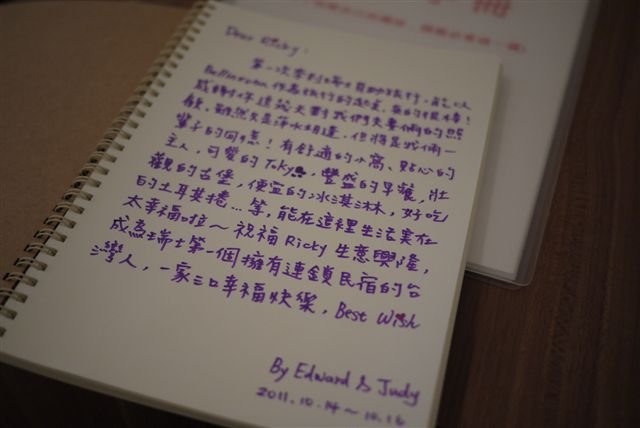 冊
Dear Ricky:
第一次來到瑞士自助旅行,能以
Bellinzona作為旅行的起點,真的很棒!
感謝你這幾天對我們夫妻倆的照
顧,雖然只是萍水相逢,但將是我倆一
輩子的回憶!有舒適的小窩、貼心的
主人,可愛的Toky,豐盛的早餐,壯
觀的古堡,便宜的冰淇淋,好吃
的土耳其捲…等,能在這裡生活實在
太幸福啦~祝福Ricky生意興隆,
成為瑞士第一個擁有連鎖民宿的台
灣人,一家三口幸福快樂,Best Wish
By Edward & Judy
2011.10.14~10.18